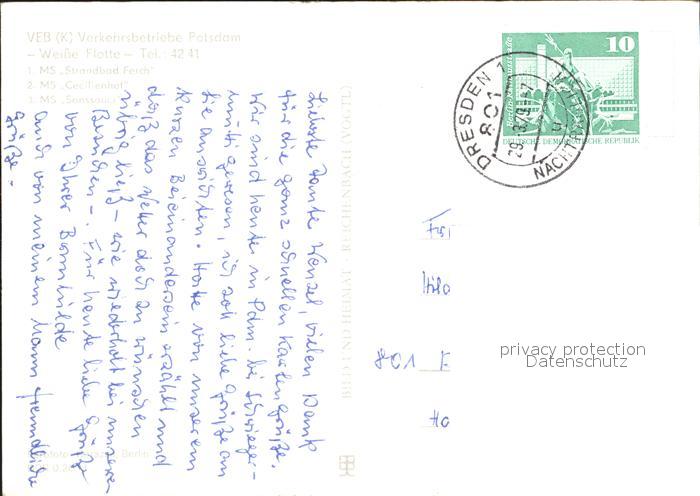 VEB (K) Verkehrsbetriebe Potsdam
– Weiße Flotte – Tel.: 42 41
1. MS „Strandbad Ferch"
2. MS „Cecilienhof"
3. MS „Sanssouci
Liebste Tante Wenzel, vielen Dank
für die ganz schnellen Kartengrüße.
Wir sind heute in Pdm. bei Schwieger-
mutti gewesen, ich soll liebe Grüße an
Sie ausrichten. Habe von unserem
kurzen Beieinandersein erzählt und
daß das Wetter doch zu wünschen
übrig ließ – wie wiederholt bei unseren
Besuchen –. Für heute liebe Grüße
von Ihrer
auch von meinem Mann freundliche
Grüße.
BILD UND HEIMAT REICHENBACH (VOGTL)
Berlin
10
DEUTSCHE DEMOKRATISCHE REPUBLIK
DRESDEN 1
801
29.-3.79.-7
801
privacy protection
Datenschutz